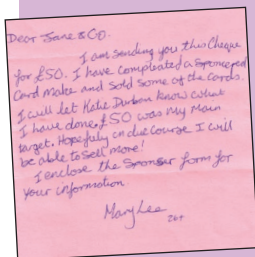 Dear Jane & CO.
I am sending you this Cheque
for £50. I have compleated a Sponcered
Card Make and sold some of the Cards.
I will let Katie Durban know what
I have done. £50 was my Main
target. Hopefully in due course I will
be able to sell more!
I enclose the Sponser form for
your information
Mary Lee